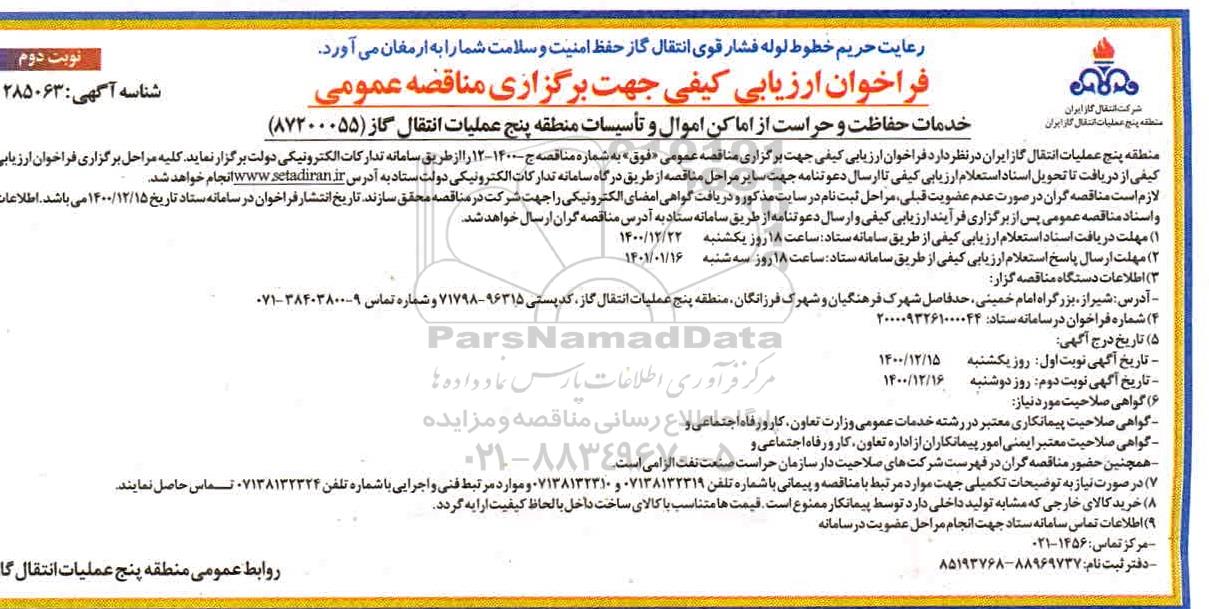 رعایت حریم خطوط لوله فشار قوی انتقال گاز حفظ امنیت و سلامت شما را به ارمغان می آورد.
نوبت دوم
فراخوان ارزیابی کیفی جهت برگزاری مناقصه عمومی
شناسه آگهی: ۲۸۵۰۶۳
شرکت انتقال گاز ایران
منطقه پنج عملیات انتقال گاز ایران
خدمات حفاظت و حراست از اماکن اموال و تأسیسات منطقه پنج عملیات انتقال گاز (۸۷۲۰۰۰۵۵)
منطقه پنج عملیات انتقال گاز ایران در نظر دارد فراخوان ارزیابی کیفی جهت برگزاری مناقصه عمومی «فوق» به شماره مناقصه ج-۱۴۰۰-۱۲ را از طریق سامانه تدارکات الکترونیکی دولت برگزار نماید. کلیه مراحل برگزاری فراخوان ارزیابی
کیفی از دریافت تا تحویل اسناد استعلام ارزیابی کیفی تا ارسال دعوتنامه جهت سایر مراحل مناقصه از طریق درگاه سامانه تدارکات الکترونیکی دولت ستاد به آدرس www.setadiran.ir انجام خواهد شد.
لازم است مناقصه گران در صورت عدم عضویت قبلی، مراحل ثبت نام در سایت مذکور و دریافت گواهی امضای الکترونیکی را جهت شرکت در مناقصه محقق سازند. تاریخ انتشار فراخوان در سامانه ستاد تاریخ ۱۴۰۰/۱۲/۱۵ می باشد. اطلاعات
و اسناد مناقصه عمومی پس از برگزاری فرآیند ارزیابی کیفی و ارسال دعوتنامه از طریق سامانه ستاد به آدرس مناقصه گران ارسال خواهد شد.
۱) مهلت دریافت اسناد استعلام ارزیابی کیفی از طریق سامانه ستاد: ساعت ۱۸ روز یکشنبه ۱۴۰۰/۱۲/۲۲
۲) مهلت ارسال پاسخ استعلام ارزیابی کیفی از طریق سامانه ستاد: ساعت ۱۸ روز سه شنبه ۱۴۰۱/۰۱/۱۶
۳) اطلاعات دستگاه مناقصه گزار:
- آدرس: شیراز، بزرگراه امام خمینی، حدفاصل شهرک فرهنگیان و شهرک فرزانگان، منطقه پنج عملیات انتقال گاز، کدپستی ۹۶۳۱۵-۷۱۷۹۸ و شماره تماس ۹-۳۸۴۰۳۸۰۰-۰۷۱
۴) شماره فراخوان در سامانه ستاد: ۲۰۰۰۰۹۳۲۶۱۰۰۰۰۴۴
۵) تاریخ درج آگهی:
- تاریخ آگهی نوبت اول: روز یکشنبه ۱۴۰۰/۱۲/۱۵
- تاریخ آگهی نوبت دوم: روز دوشنبه ۱۴۰۰/۱۲/۱۶
۶) گواهی صلاحیت مورد نیاز:
- گواهی صلاحیت پیمانکاری معتبر در رشته خدمات عمومی وزارت تعاون، کار و رفاه اجتماعی و
- گواهی صلاحیت معتبر ایمنی امور پیمانکاران از اداره تعاون، کار و رفاه اجتماعی و
- همچنین حضور مناقصه گران در فهرست شرکت های صلاحیت دار سازمان حراست صنعت نفت الزامی است.
۷) در صورت نیاز به توضیحات تکمیلی جهت موارد مرتبط با مناقصه و پیمانی با شماره تلفن ۰۷۱۳۸۱۳۲۳۱۹ و ۰۷۱۳۸۱۳۲۳۱۰ و موارد مرتبط فنی و اجرایی با شماره تلفن ۰۷۱۳۸۱۳۲۳۲۴ تـــماس حاصل نمایند.
۸) خرید کالای خارجی که مشابه تولید داخلی دارد توسط پیمانکار ممنوع است. قیمت ها متناسب با کالای ساخت داخل با لحاظ کیفیت ارایه گردد.
۹) اطلاعات تماس سامانه ستاد جهت انجام مراحل عضویت در سامانه
- مرکز تماس: ۱۴۵۶-۰۲۱
- دفتر ثبت نام: ۸۸۹۶۹۷۳۷-۸۵۱۹۳۷۶۸
روابط عمومی منطقه پنج عملیات انتقال گاز
ParsNamadData
مرکز فرآوری اطلاعات پارس نماد داده ها
پایگاه اطلاع رسانی مناقصه و مزایده
۰۲۱-۸۸۳۴۹۶۷۰-۵